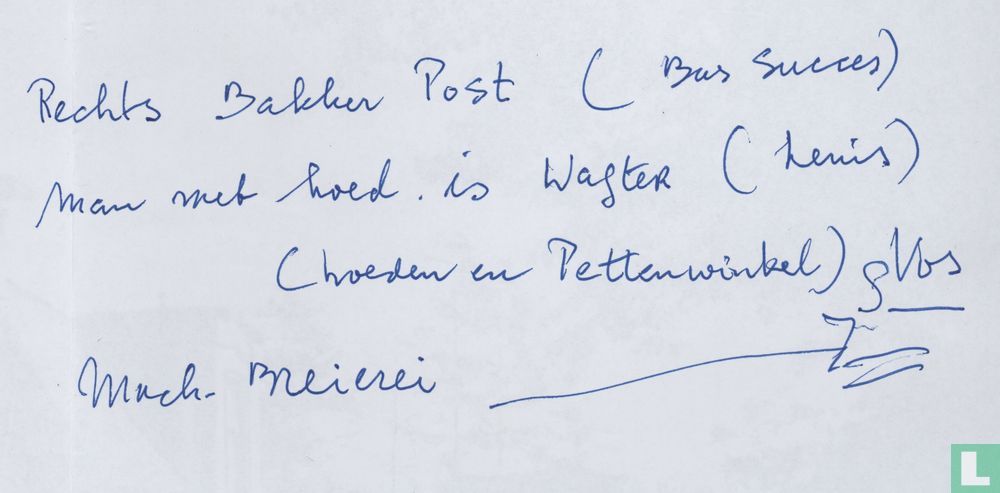 Rechts Bakker Post ( Bas Succes)
Man met hoed. is Wagter (
(hoeden en Pettenwinkel) Vos
Mach. Breierei
L